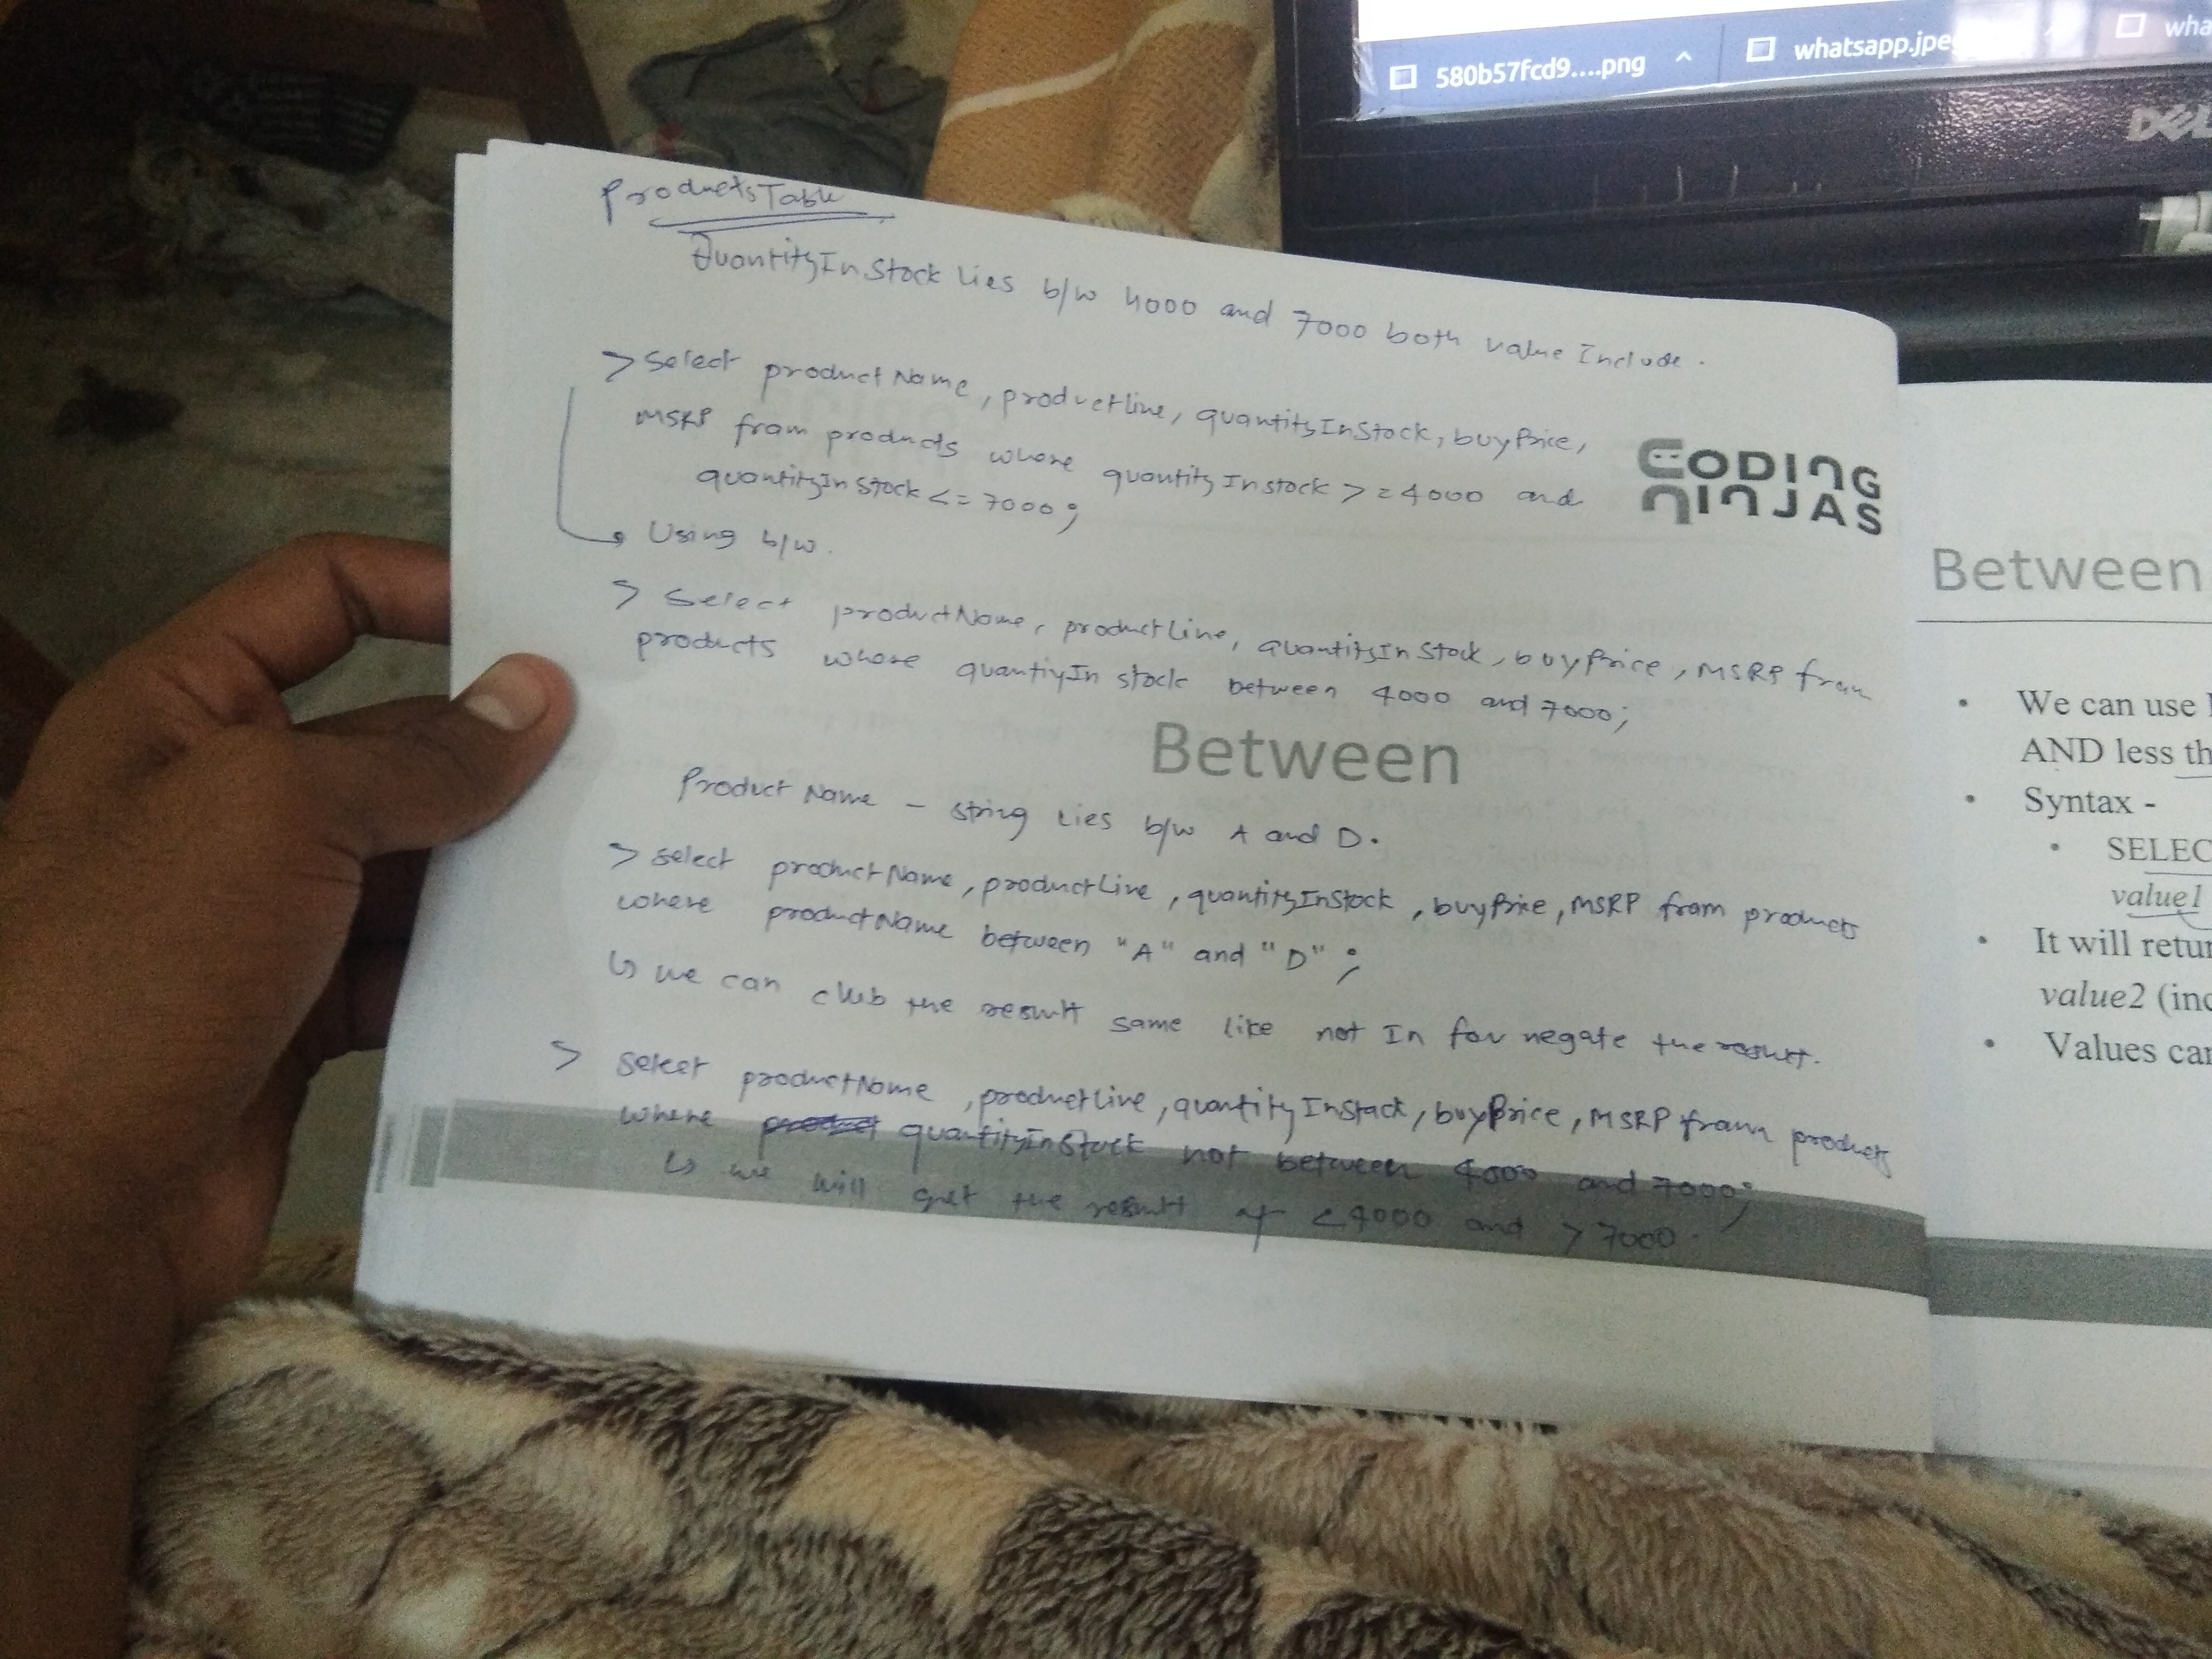 580b57fcd9....png
whatsapp.jpe
wha
DELL
ProductsTable
QuantityInStock Lies b/w 4000 and 7000 both value Include.
> Select productName, productline, quantityInStock, buyPrice,
MSRP from products where quantityInstock >=4000 and
quantityInstock <= 7000;
Using b/w.
> Select productName, productLine, quantityInStock, buyPrice, MSRP from
products where quantiyIn stock between 4000 and 7000;
CODING
NINJAS
Between
Product Name - string Lies b/w A and D.
> select productName, productLine, quantityInStock, buyPrice, MSRP from products
where productName between "A" and "D";
↳ we can club the result same like not In for negate the result.
> Select productName, productLine, quantityInStock, buyPrice, MSRP from products
where quantityInStock not between 4000 and 7000;
↳ we will get the result of <4000 and >7000.
Between
• We can use
AND less th
• Syntax -
• SELEC
value1
• It will retur
value2 (inc
• Values car